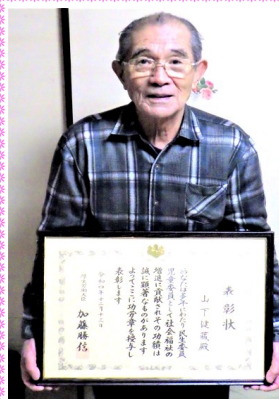 表彰状
山下健蔵殿
あなたは多年にわたり民生委員
児童委員として社会福祉の
増進に貢献されその功績は
誠に顕著なものがあります
よってここに功労章を授与し
表彰します
加藤勝信